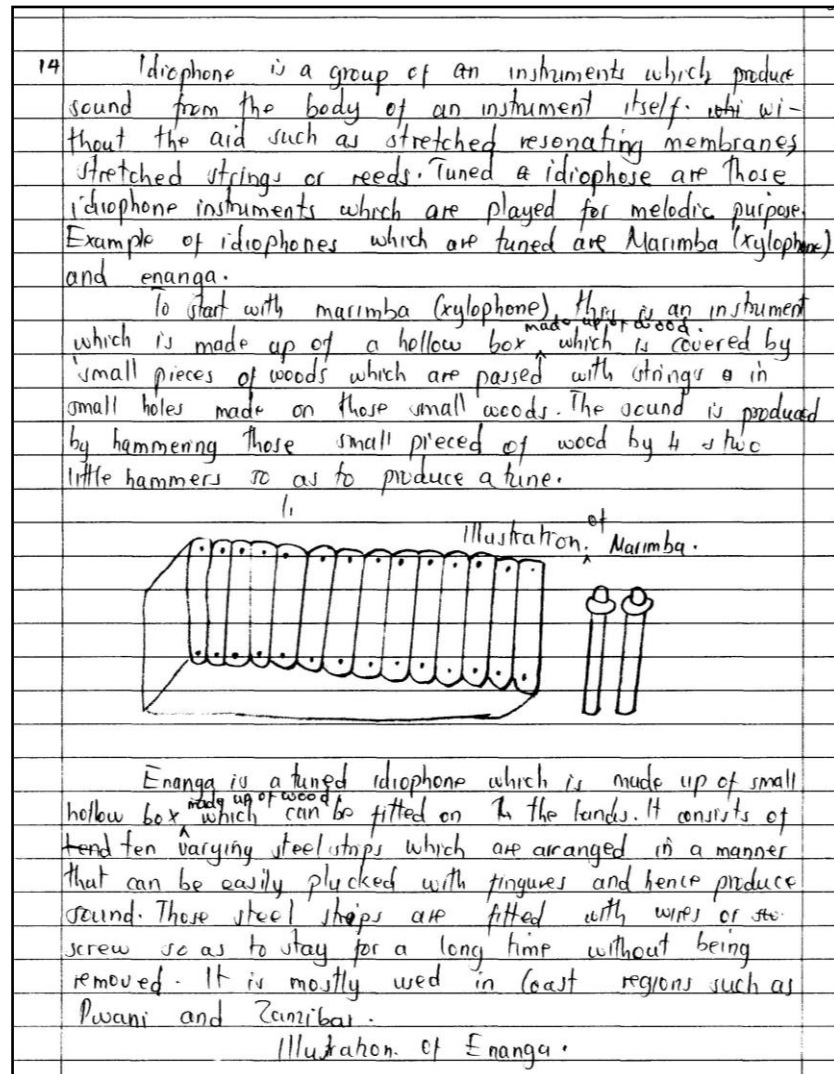 14 Idiophone is a group of an instruments which produce
sound from the body of an instrument itself. wi-
thout the aid such as stretched resonating membranes,
stretched strings or reeds. Tuned idiophose are those
idiophone instruments which are played for melodic purpose.
Example of idiophones which are tuned are Marimba (xylophone)
and enanga.
To start with marimba (xylophone), this is an instrument
which is made up of a hollow box made up of wood. which is covered by
small pieces of woods which are passed with strings in
small holes made on those small woods. The sound is produced
by hammering those small pieced of wood by two
little hammers so as to produce a tune.
Illustration. of Marimba.
Enanga is a tuned idiophone which is made up of small
hollow box made up of wood which can be fitted on the hands. It consists of
tend ten varying steel strips which are arranged in a manner
that can be easily plucked with fingures and hence produce
sound. Those steel strips are fitted with wires or
screw so as to stay for a long time without being
removed. It is mostly used in Coast regions such as
Pwani and Zanzibar.
Illustration. of Enanga.